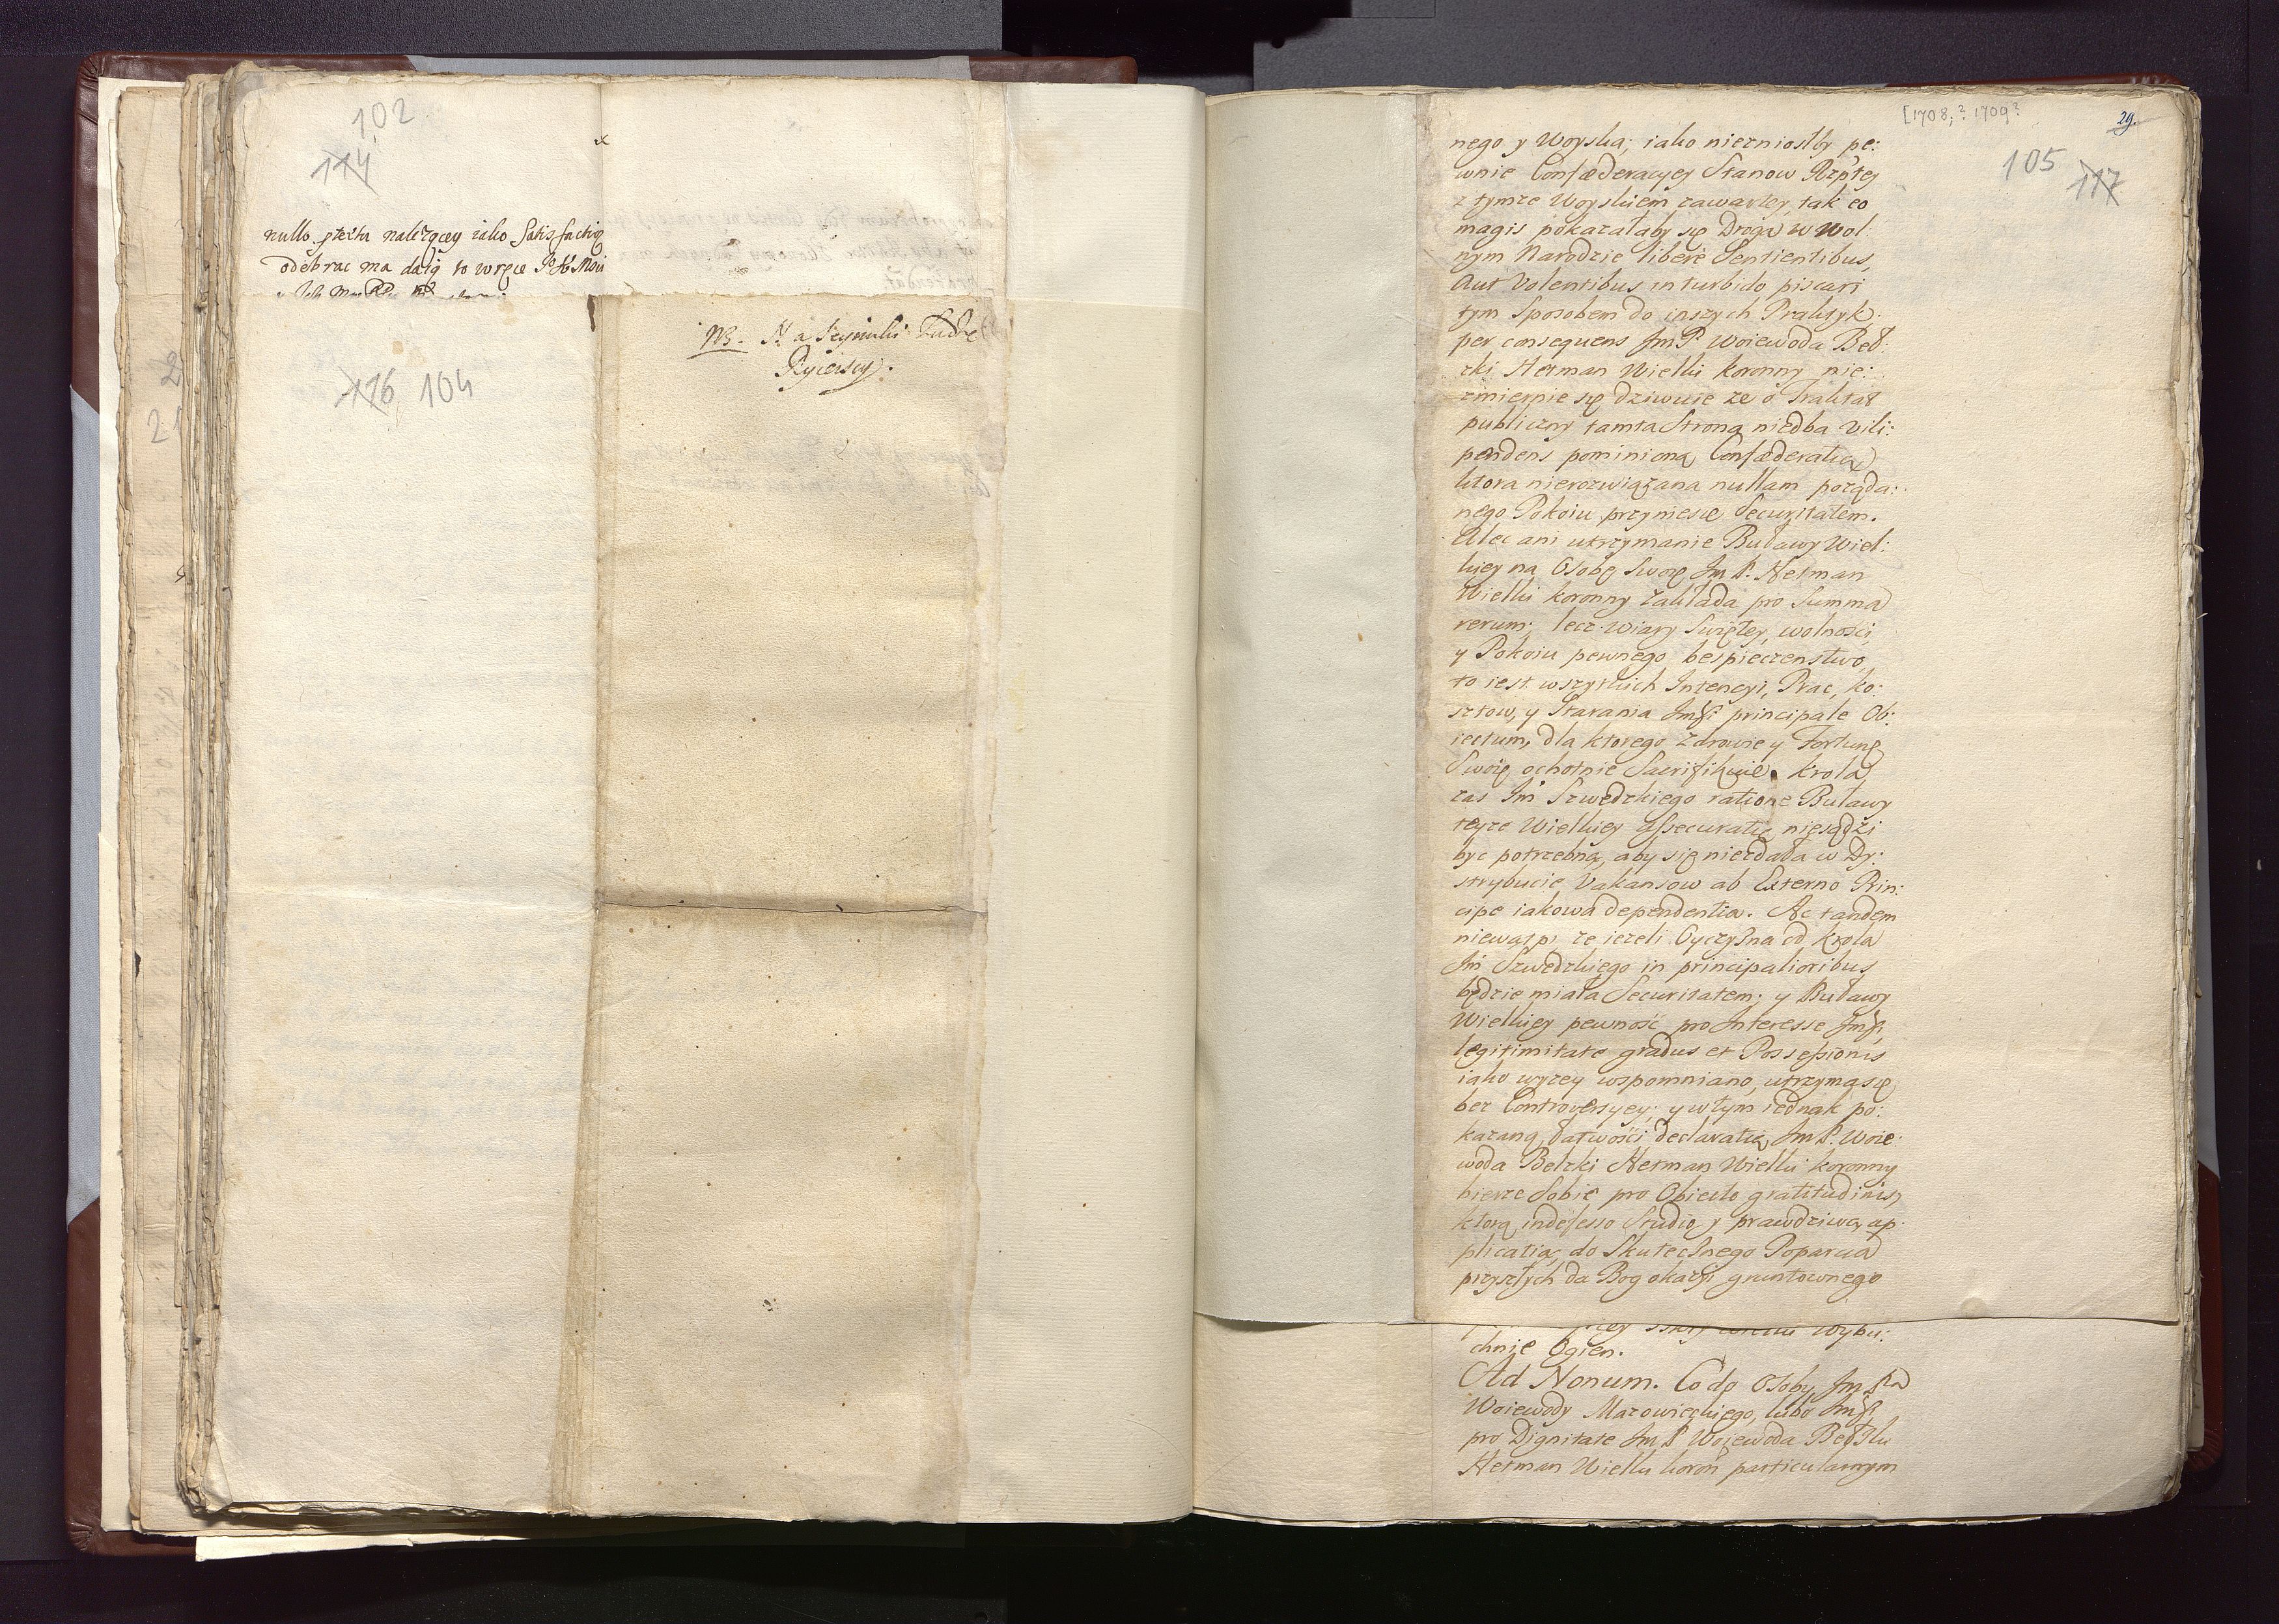 102
114
nullo належącey iako Satisfactią
odebrac ma daią to w ręce
116 104
NB. Na Seymiki
Rycerscy.
2
21
[1708,? 1709?
29.
105 117
nego y Woyska; iako niezniosłby pe:
wnie Confæderacyey Stanow Rzptey
z tymze Woyskiem zawartey, tak eo
magis pokazałaby się Droga w wol:
nym Narodzie libere Sentientibus,
Aut Volentibus in turbido piscari
tym Sposobem do inszych Praktyk.
per consequens Jm P. Woiewoda Beł:
zki Hetman Wielki koronny nie:
zmiernie się dziwuie ze o Traktat
publiczny tamta Strona niedba vili:
pendens pominioną Confæderatią
ktora nierozwiązana nullam pożąda:
nego Pokoiu przyniesie Securitatem.
Alec ani utrzymanie Buławy Wiel:
kiey na Osobę Swoię Jm P. Hetman
Wielki koronny zakłada pro Summa
rerum; lecz Wiary Swiętey, wolnosci,
y Pokoiu pewnego bespieczenstwo,
to iest wszytkich Intencyi, Prac, ko:
sztow, y Starania Jmści principale Ob:
iectum, dla ktorego zdrowie y Fortunę
Swoię ochotnie Sacrifikuie. Krola
zas Jm Szwedzkiego ratione Buławy
teyze Wielkiey assecuratię niesądzi
byc potrzebną, aby się niezdała w Dy:
strybucie Vakansow ab Externo Prin:
cipe iakowa dependentia. Ac tandem
niewątpi, ze iezeli Oyczyzna od Krola
Jm Szwedzkiego in principalioribus
będzie miała Securitatem; y Buławy
Wielkiey pewność pro Interesse Jmści,
legitimitate gradus et Possessionis
iako wyzey wspomniano, utrzyma się
bez Controversyey; y w tym iednak po:
kazaną łatwości declaratią Jm P. Woie:
woda Belzki Hetman Wielki koronny
bierze Sobie pro Obiecto gratitudinis,
ktorą indefesso Studio y prawdziwą ap:
plicatią do Skutecznego Poparcia
przyszłych da Bog okazyi gruntownego
wybu:
chnie Ogien.
Ad Nonum. Co do Osoby Jm Pa
Woiewody Mazowieckiego, lubo Jmść
pro Dignitate Jm P Woiewoda Bełzki
Hetman Wielki koron particularnym